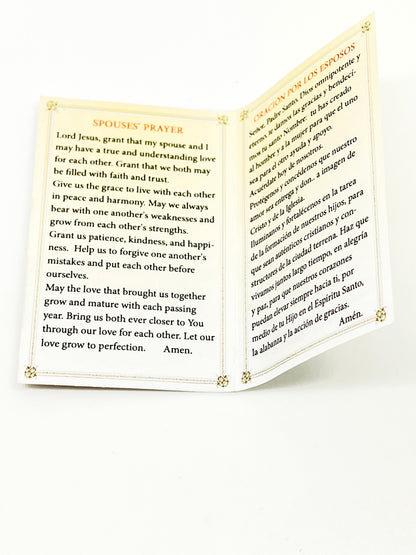 SPOUSES' PRAYER
Lord Jesus, grant that my spouse and I
may have a true and understanding love
for each other. Grant that we both may
be filled with faith and trust.
Give us the grace to live with each other
in peace and harmony. May we always
bear with one another's weaknesses and
grow from each other's strengths.
Grant us patience, kindness, and happi-
ness. Help us to forgive one another's
mistakes and put each other before
ourselves.
May the love that brought us together
grow and mature with each passing
year. Bring us both ever closer to You
through our love for each other. Let our
love grow to perfection. Amen.
ORACIÓN POR LOS ESPOSOS
Señor, Padre Santo, Dios omnipotente y
eterno, te damos las gracias y bendeci-
mos tu santo Nombre: tu has creado
al hombre y a la mujer para que el uno
sea para el otro ayuda y apoyo.
Acuérdate hoy de nosotros.
Protégenos y concédenos que nuestro
amor sea entrega y don.. a imagen de
Cristo y de la Iglesia.
Ilumínanos y fortalécenos en la tarea
de la formación de nuestros hijos, para
que sean auténticos cristianos y con-
structores de la ciudad terrena. Haz que
vivamos juntos largo tiempo, en alegría
y paz, para que nuestros corazones
puedan elevar siempre hacia ti, por
medio de tu Hijo en el Espíritu Santo,
la alabanza y la acción de gracias.
Amén.